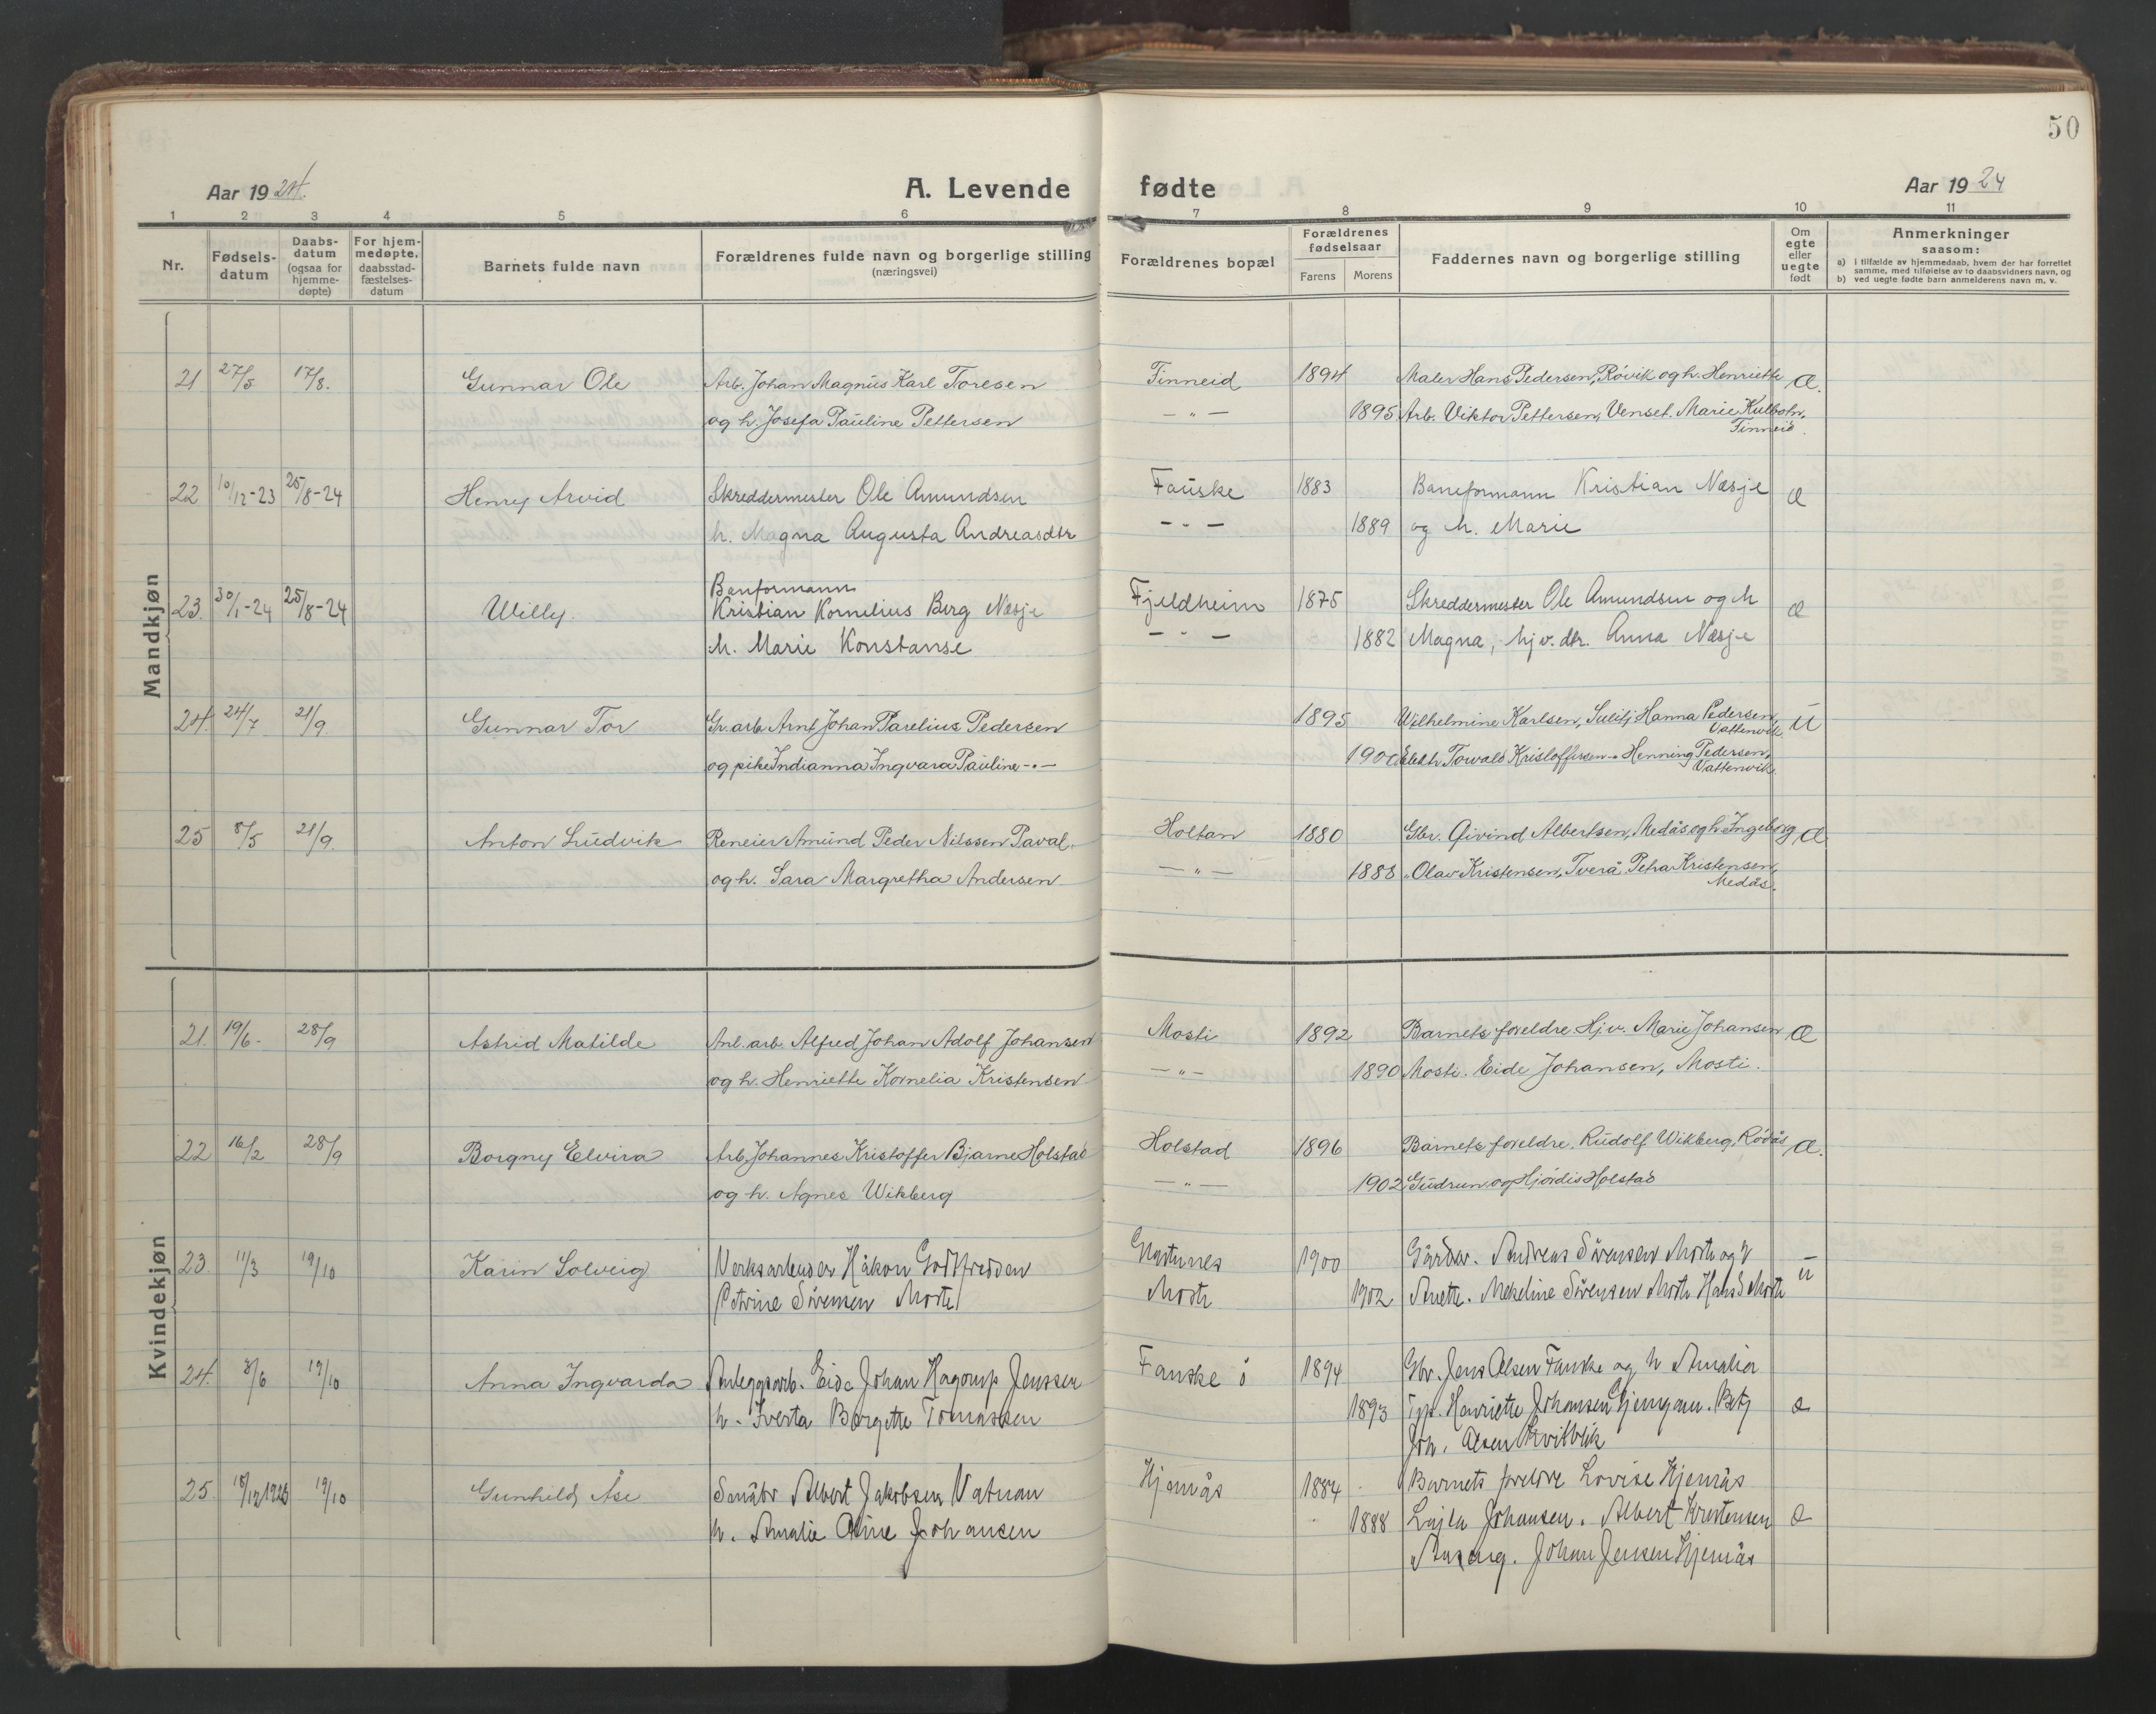 50
Aar 1924. A. Levende fødte Aar 1924
1 2 3 4 5 6 7 8 9 10 11
Nr. Fødsels-datum Daabs-datum (ogsaa for hjemme-døpte) For hjem-medøpte, daabsstad-fæstelses-datum Barnets fulde navn Forældrenes fulde navn og borgerlige stilling (næringsvei) Forældrenes bopæl Forældrenes fødselsaar Farens Morens Faddernes navn og borgerlige stilling Om egte eller uegte født Anmerkninger saasom:
a) i tilfælde av hjemmedaab, hvem der har forrettet samme, med tilføielse av to daabsvidners navn, og
b) ved uegte fødte barn anmelderens navn m. v.
Mandkjøn
21 27/5 17/8. Gunnar Ole Arb. Johan Magnus Karl Toresen Finneid 1894 Maler Hans Pedersen, Røvik og h. Henriette Æ.
og h. Josefa Pauline Pettersen — " — 1895 Arb. Viktor Pettersen, Venset. Marie Kulbotn,
Finneid.
22 10/12-23 25/8-24 Henry Arvid Skreddermester Ole Amundsen Fauske 1883 Baneformann Kristian Næsje Æ
h. Magna Augusta Andreasdtr — " — 1889 og h. Marie
Banformann
23. 30/1-24 25/8-24 Willy. Kristian Kornelius Berg Næsje Fjeldheim 1875 Skreddermester Ole Amundsen og h Æ
h. Marie Konstanse — " — 1882 Magna, hjv. dtr. Anna Næsje
24. 24/7 21/9. Gunnar Tor Gr. arb. Arnt Johan Parelius Pedersen 1895 Wilhelmine Karlsen, Sulitj Hanna Pedersen, U
Vattenvik
og pike Indianna Ingvara Pauline -"- 1900 Torvald Kristoffersen -" Henning Pedersen,
Vattenvik.
25 8/5 21/9. Anton Ludvik Reneier Amund Peder Nilssen Paval. Holtan 1880 Gbr. Øivind Albertsen, Medås og h. Ingeborg, Æ
og h. Sara Margretha Andersen — " — 1888 " Olav Kristensen, Tverå. Petra Kristensen,
Medås.
Kvindekjøn
21. 19/6. 28/9 Astrid Matilde Anl. arb. Alfred Johan Adolf Johansen Mosti 1892 Barnets foreldre. Hjv. Marie Johansen Æ
og h. Henriette Kornelia Kristensen — " — 1890 Mosti. Eide Johansen, Mosti.
22 16/2 28/9 Borgny Elvira Arb. Johannes Kristoffer Bjarne Holstad Holstad 1896 Barnets foreldre. Rudolf Wikberg, Rødås Æ.
og h. Agnes Wikberg — " — 1902 Gudrun og Hjørdis Holstad
23 11/3 19/10 Karin Solveig Verksarbeider Håkon Godtfredsen 1900 Gårdbr. Andreas Sørensen Moste og h
Petrine Sørensen Moste Moste 1902 Anette. Mekeline Sørensen Moste Hans S Moste u
24. 8/6 19/10 Anna Ingvarda Anleggsarb. Eide Johan Hagerup Jenssen Fauske ö 1894 Gbr. Jens Olsen Fauske og h Amalia
h. Iverta Bergette Tomassen 1893 Henriette Johansen Betz æ
Joh. Olsen Kvitblik
25. 18/12 1923 19/10 Gunhild Åse Småbr Albert Jakobsen Vatnan Hjemås 1884 Barnets foreldre Lovise Hjemås
h. Amalie Oline Johansen 1888 Lajla Johansen. Albert Kristensen æ
Johan Jensen Hjemås